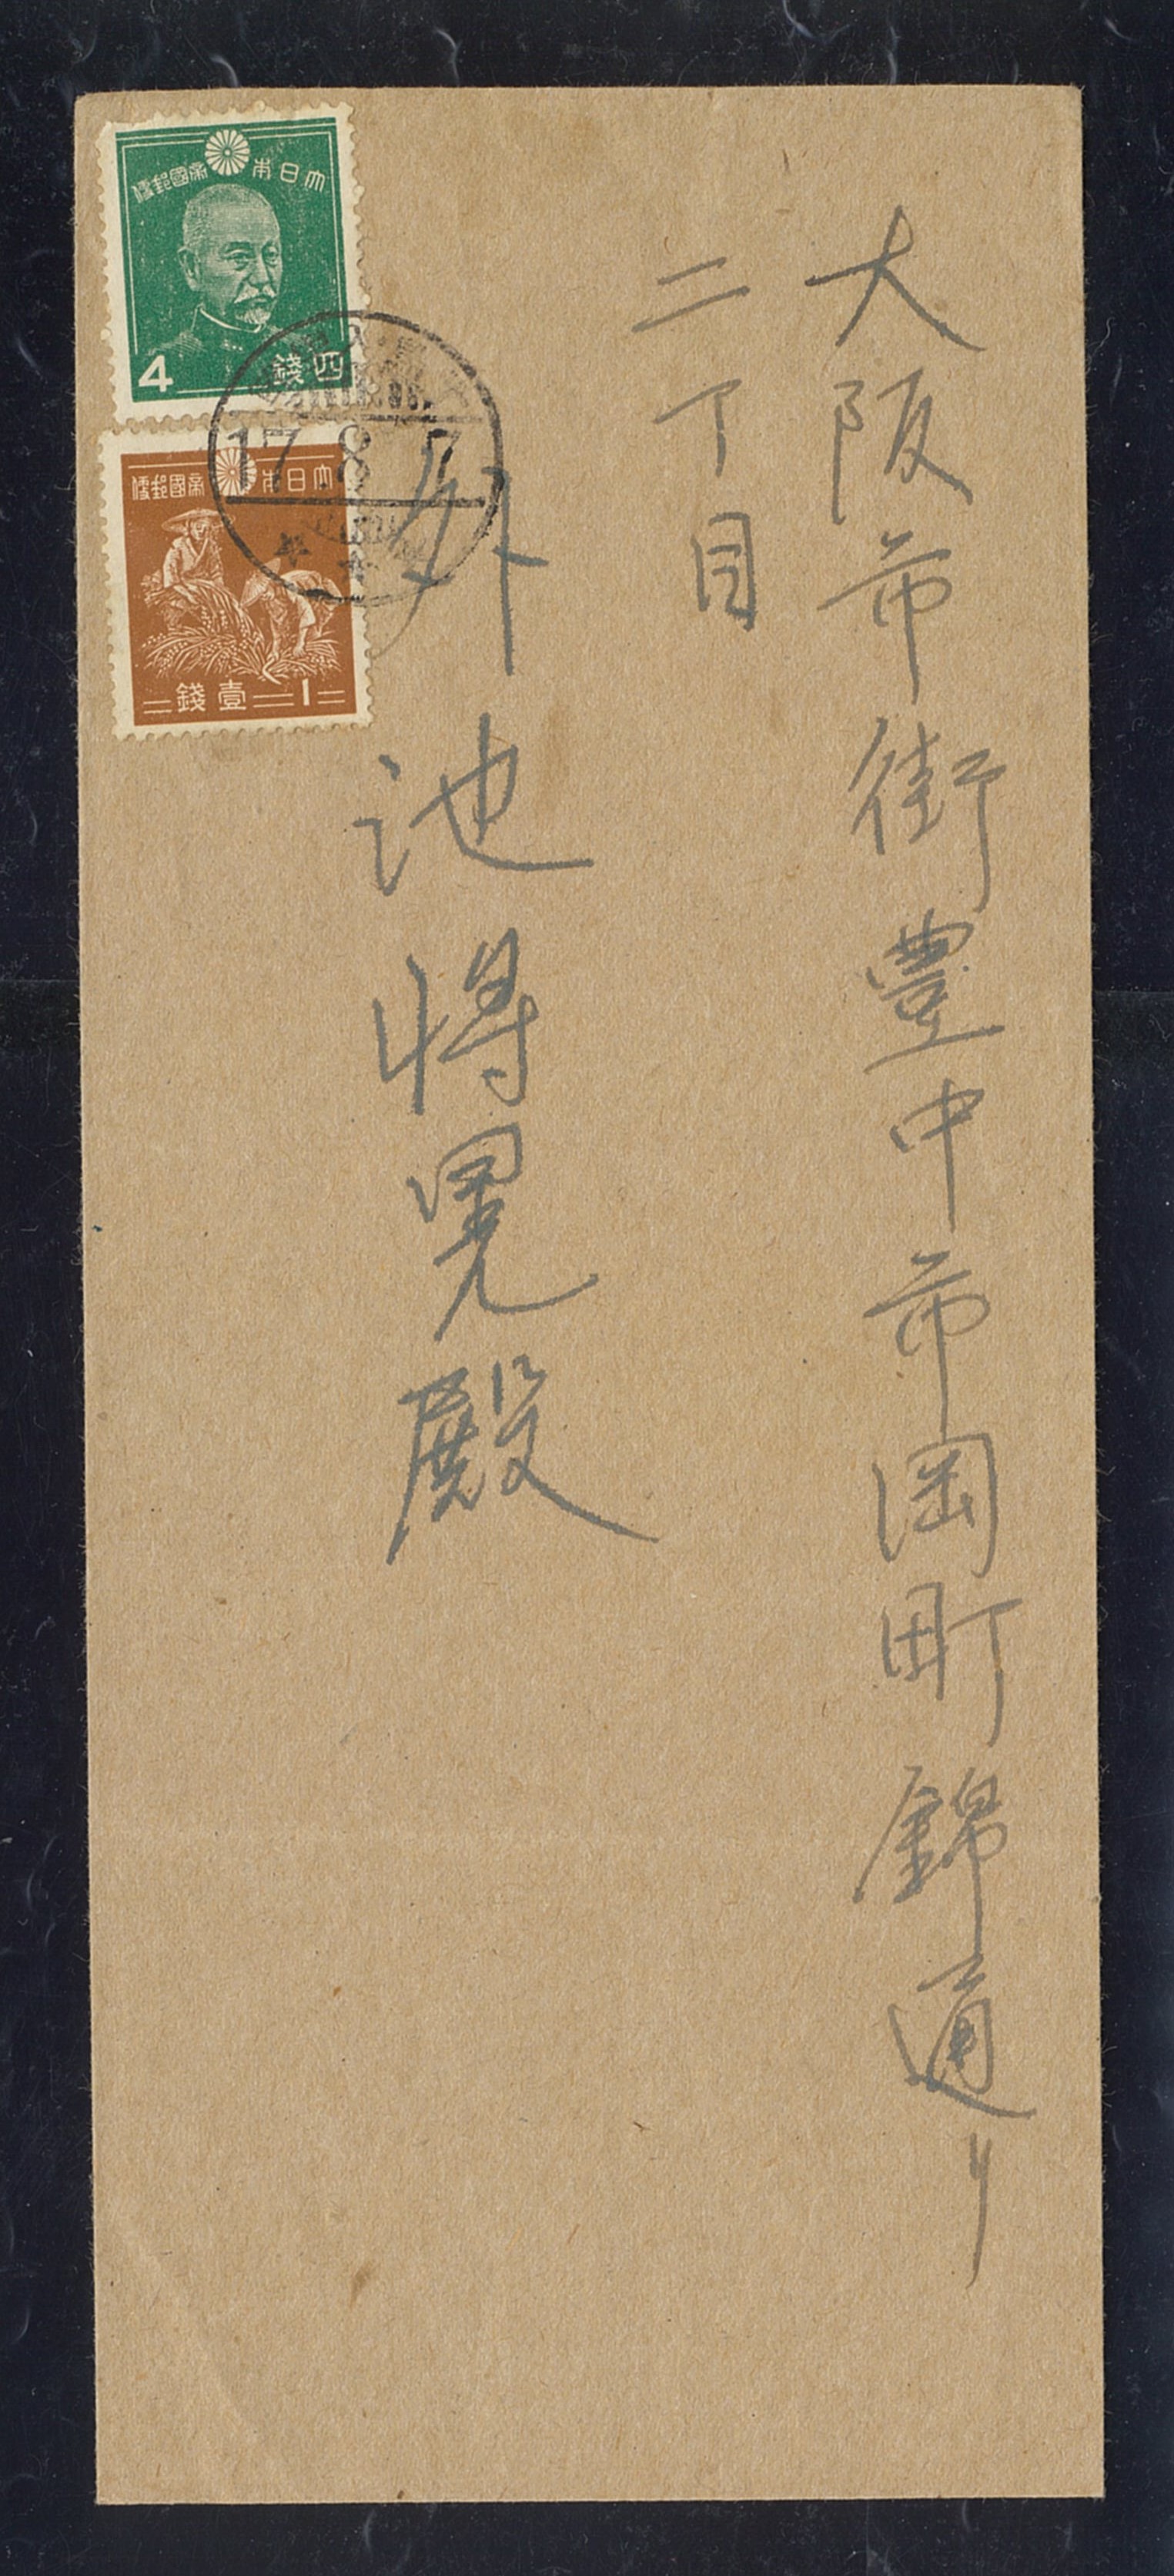 大阪市街豊中市岡町錦通り
二丁目
外池將晃殿
大日本帝國郵便
4 四錢
17.8.7
大日本帝國郵便
壹錢 1